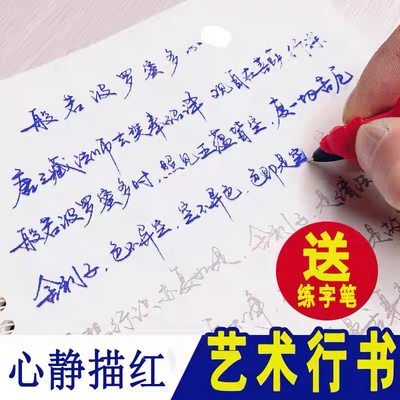 般若波罗蜜多心
唐三藏法师玄奘奉诏译 观自在菩萨行深
般若波罗蜜多时,照见五蕴皆空,度一切苦厄
舍利子,色不异空,空不异色,色即是空
想行识,亦复如是,舍利子,是诸法
送
练字笔
心静描红
艺术行书